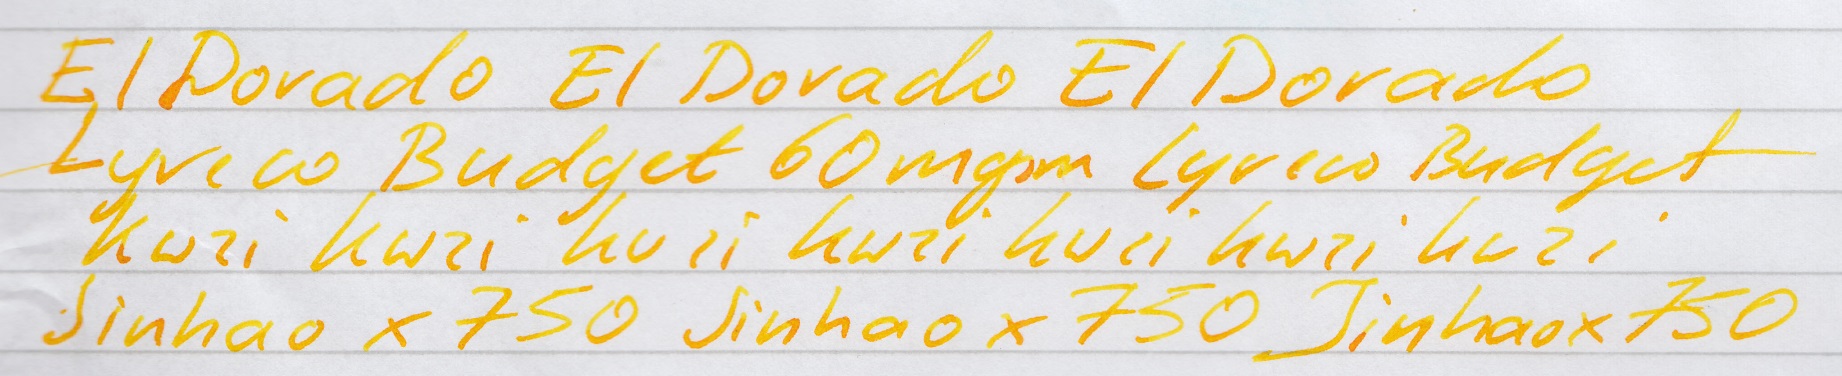 El Dorado El Dorado El Dorado
Lyreco Budget 60mgsm Lyreco Budget
kwzi kwzi kwzi kwzi kwzi kwzi kwzi
Jinhao x 750 Jinhao x 750 Jinhao x 750